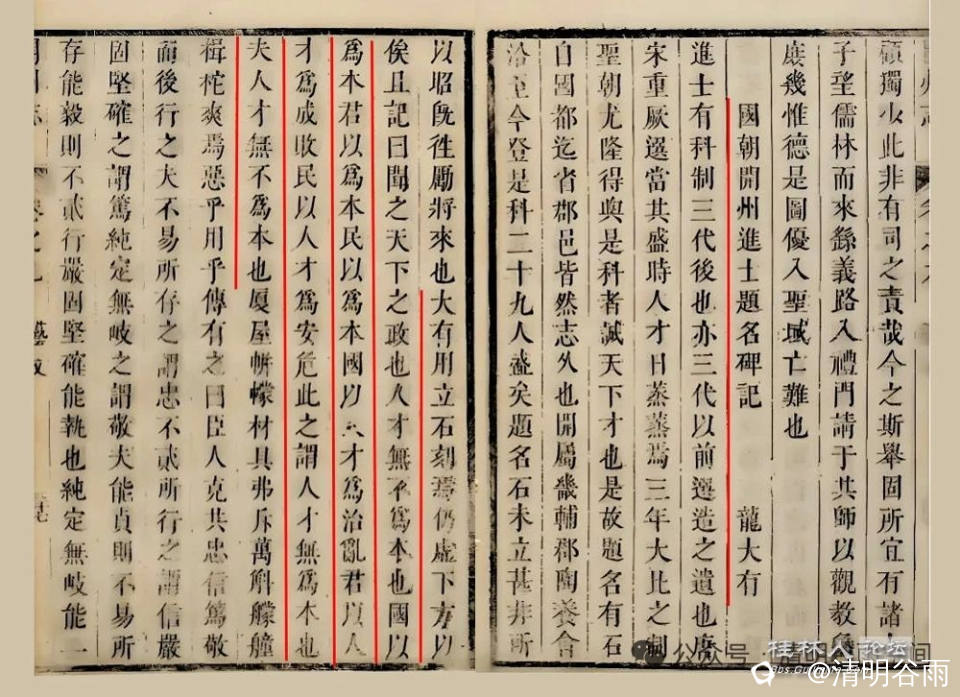 顧獨少此非有司之責哉今之斯舉固所宜有諸
子望儒林而來繇義路入禮門請于其師以觀教
庻幾惟德是圖優入聖域亡難也
國朝開州進士題名碑記 龍大有
進士有科制三代後也亦三代以前選造之遺也唐
宋重厥選當其盛時人才日蒸蒸焉三年大比之制
聖朝尤隆得與是科者誠天下才也是故題名有石
自國都迄省郡邑皆然志久也開屬畿輔郡陶養合
洽至今登是科二十九人盛矣題名石未立甚非所
以昭旣徃勵將來也大有用立石刻焉仍虛下方以
俟且記曰聞之天下之政也人才無不爲本也國以
爲本君以爲本民以爲本國以人才爲治亂君以人
才爲成敗民以人才爲安危此之謂人才無爲本也
夫人才無不爲本也厦屋帡幪材具弗斥萬斛艨艟
楫柁爽焉惡乎用乎傳有之曰臣人克共忠信篤敬
而後行之夫不易所存之謂忠不貳所行之謂信嚴
固堅確之謂篤純定無岐之謂敬夫能貞則不易所
存能毅則不貳行嚴固堅確能執也純定無岐能一
藝文
公众号·清明谷雨
桂林人论坛
@清明谷雨